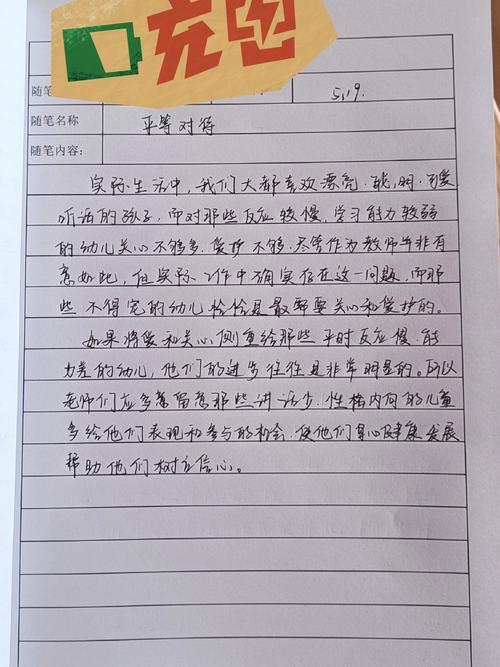 充电
随笔
5.19.
随笔名称 平等对待
随笔内容：
实际生活中，我们大都喜欢漂亮、聪明、可爱
听话的孩子，而对那些反应较慢，学习能力较弱
的幼儿关心不够多、爱护不够，尽管作为教师并非有
意如此，但实际工作中确实存在这一问题，而那
些不得宠的幼儿恰恰是最需要关心和爱护的。
如果将爱和关心侧重给那些平时反应慢、能
力差的幼儿，他们的进步往往是非常明显的。所以
老师们应多留意那些讲话少、性格内向的儿童
多给他们表现和参与的机会，使他们身心健康发展
帮助他们树立信心。